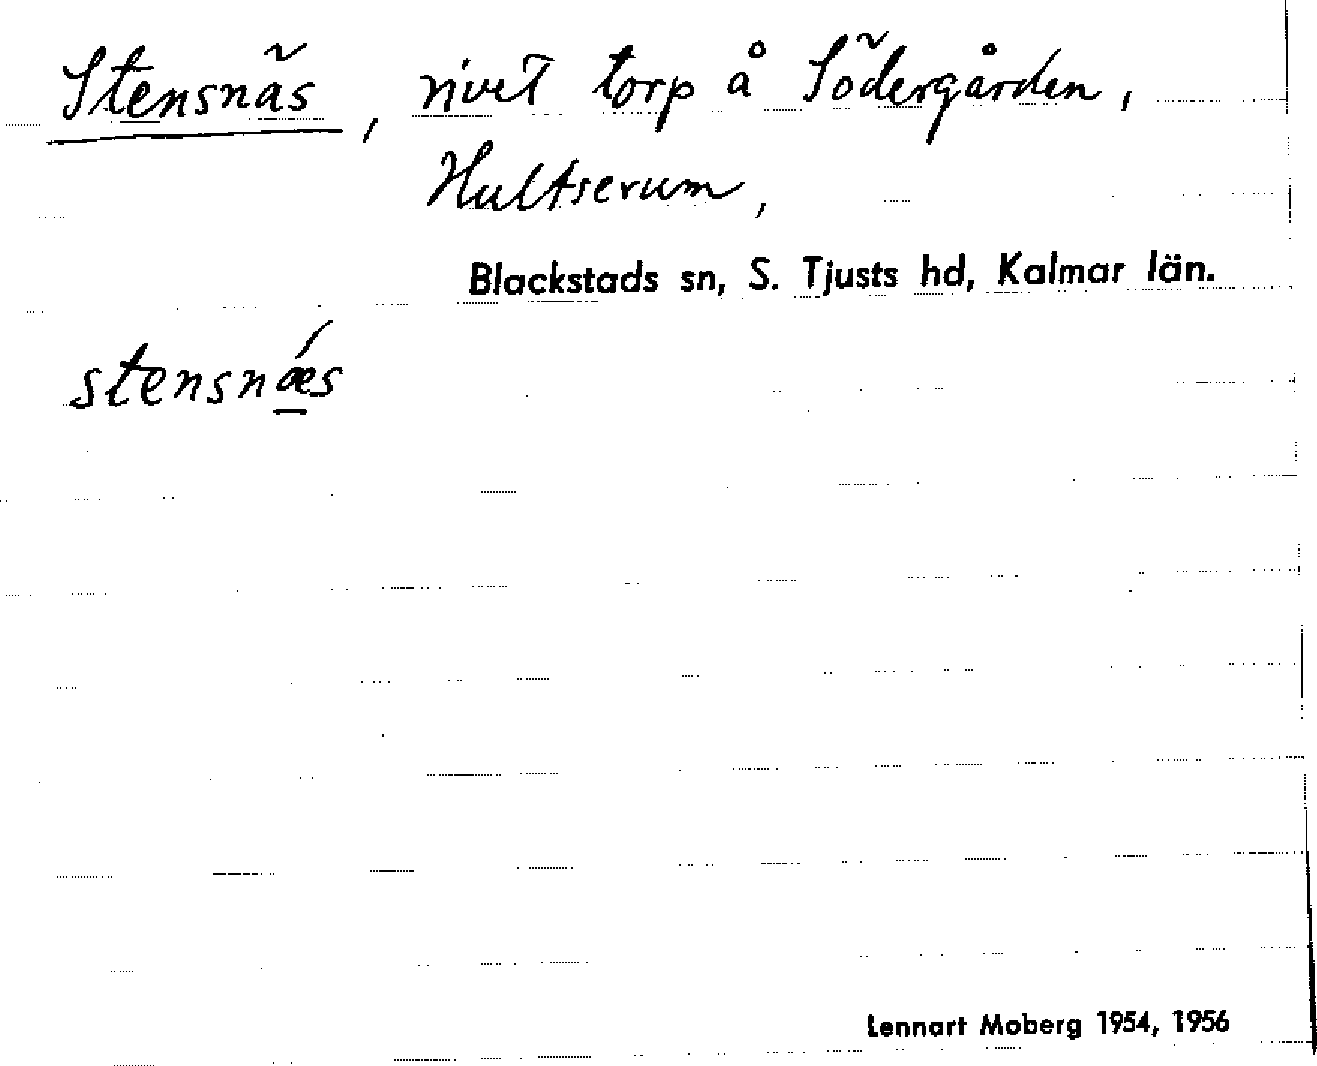 Stensnäs, rivet torp å Södergården,
Hultserum,
Blackstads sn, S. Tjusts hd, Kalmar län.
stensnǽs
Lennart Moberg 1954, 1956